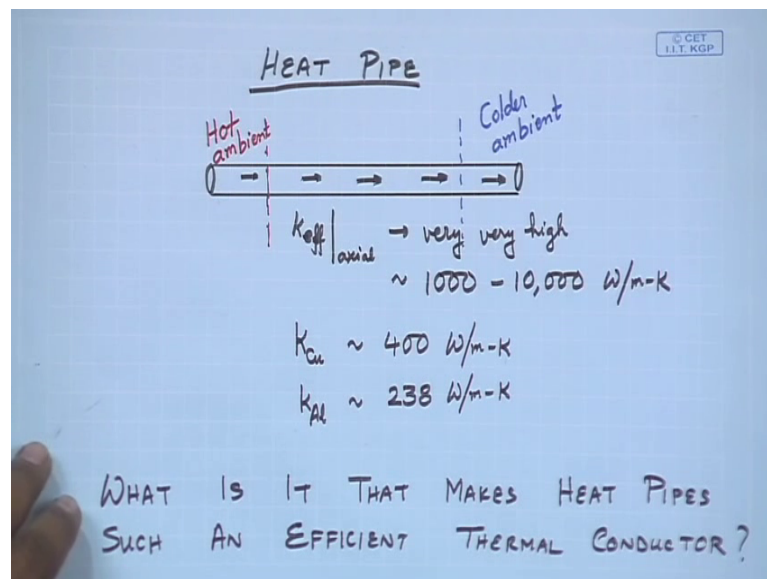 © CET
I.I.T. KGP
HEAT PIPE
Hot
ambient
Colder
ambient
Keff|axial → very very high
~ 1000 - 10,000 W/m-K
KCu ~ 400 W/m-K
KAl ~ 238 W/m-K
WHAT IS IT THAT MAKES HEAT PIPES
SUCH AN EFFICIENT THERMAL CONDUCTOR?